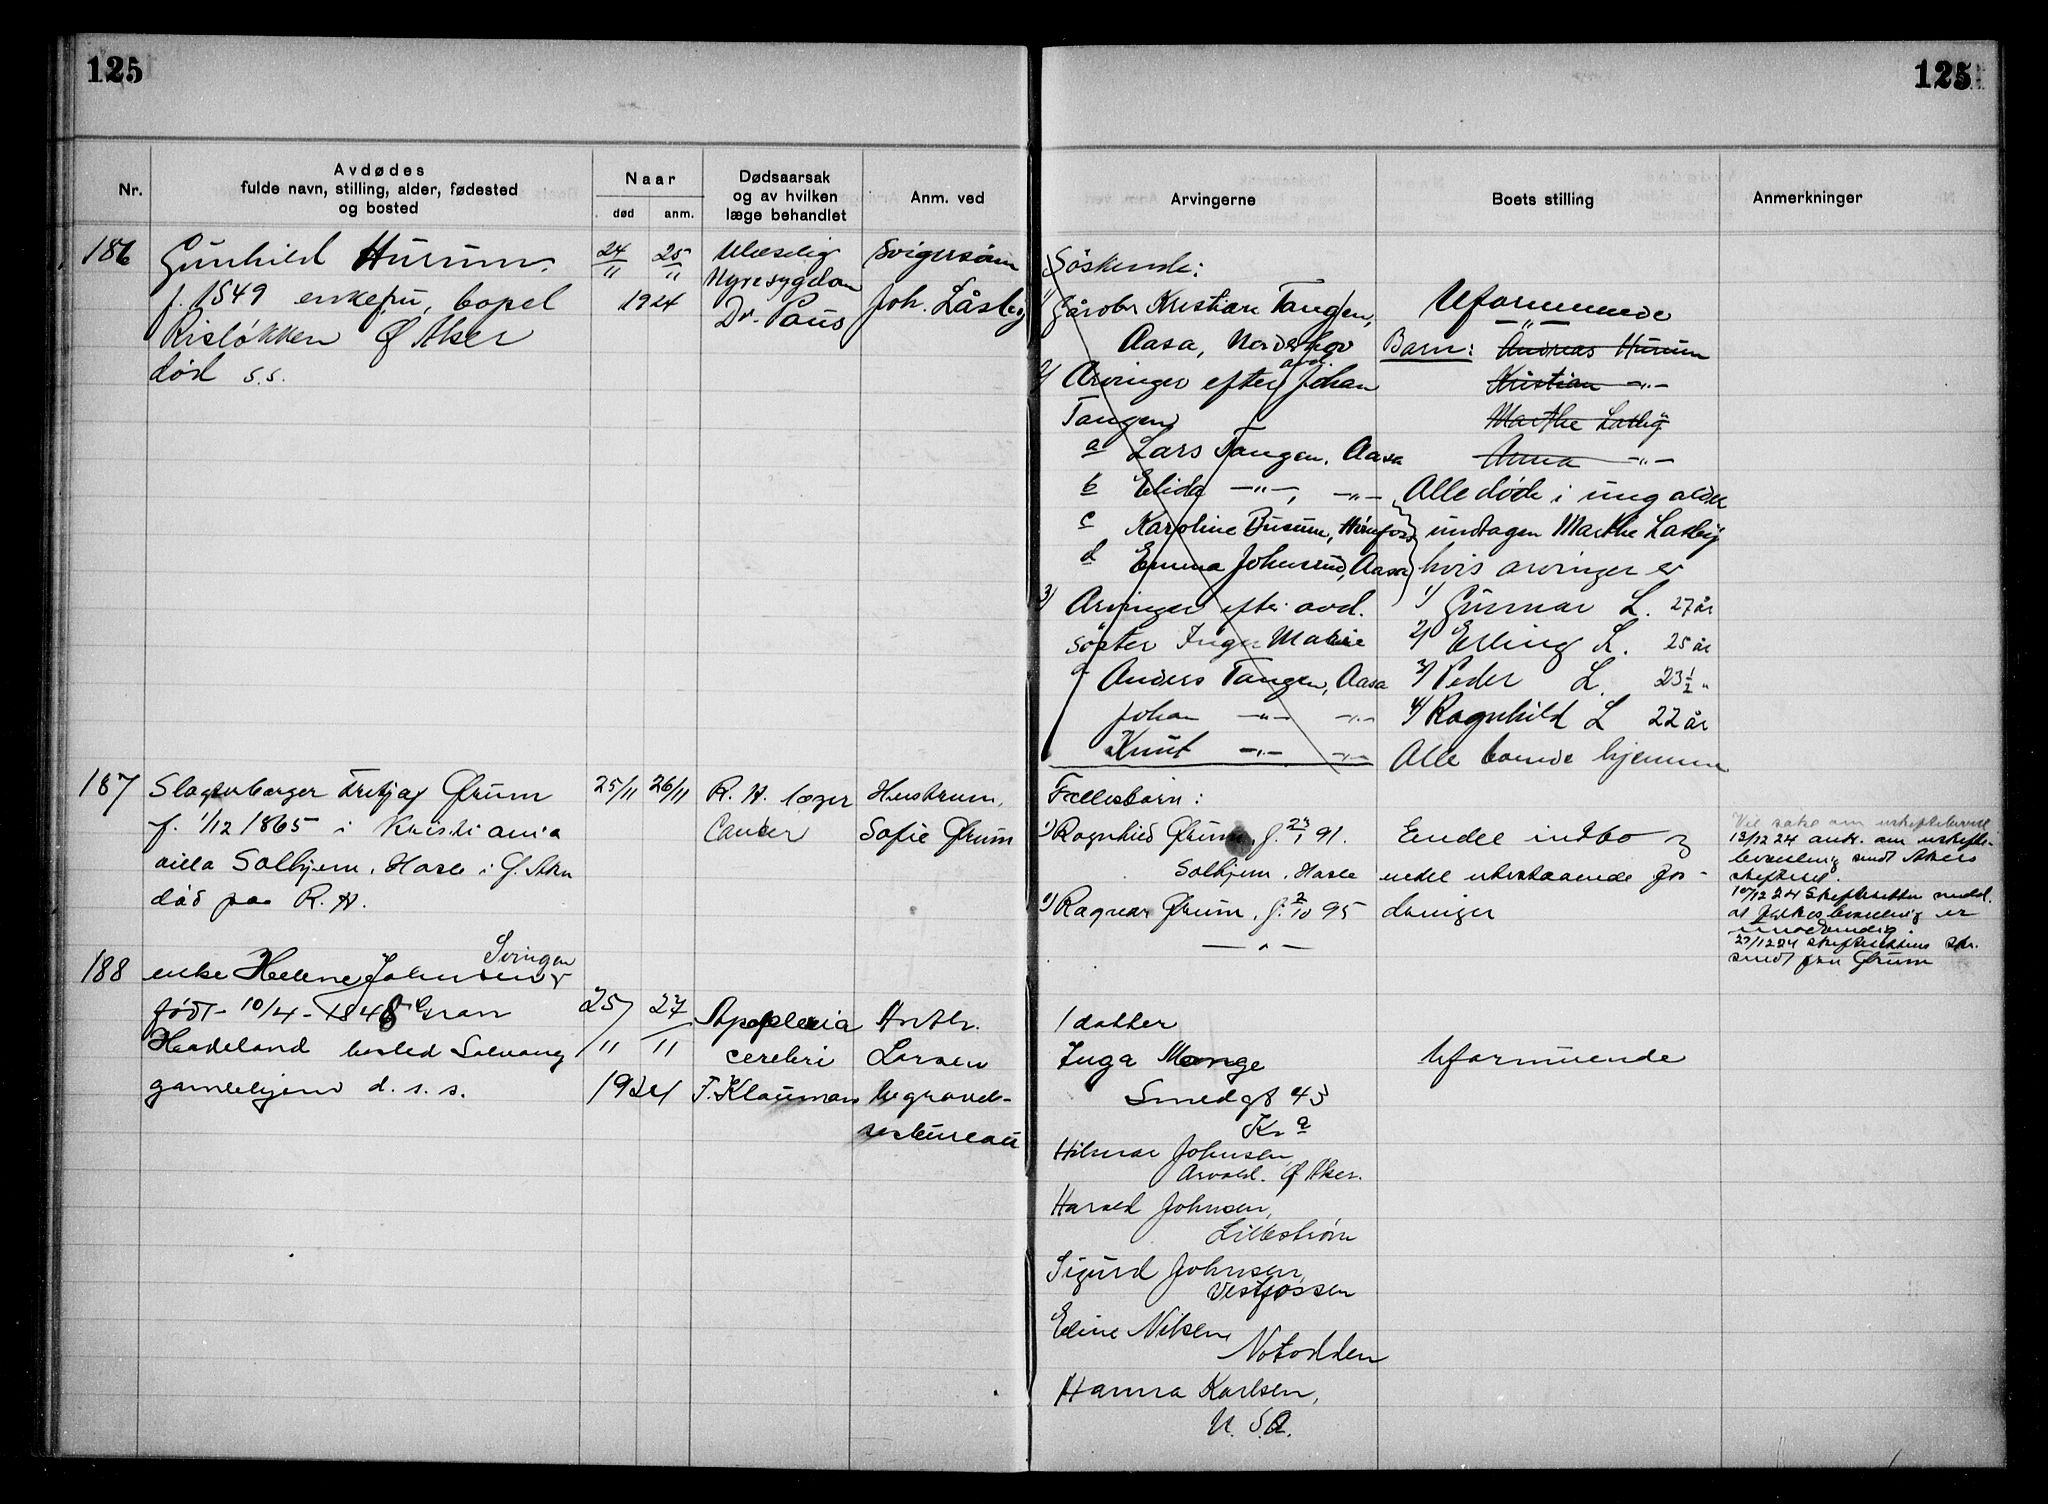 125
125
Nr.
Avdødes
fulde navn, stilling, alder, fødested
og bosted
Naar
død
anm.
Dødsaarsak
og av hvilken
læge behandlet
Anm. ved
Arvingerne
Boets stilling
Anmerkninger
186
Gunhild Hurum.
f. 1849 enkefru, bopel
Risløkken Ø Aker
død s.s.
24/11 25/11
1924
Nyresygdom
Dr. Paus
Svigersønn
Joh. Låsby
Søskende:
1) Gårdbr Kristian Tangen,
Aasa, Norderhov
2) Arvinger efter avd. Johan
Tangen
a Lars Tangen, Aasa
b Elida -"-, -"-
c Karoline Busum,
d Emma Johnsrud, Aasa
3) Arvinger efter avd.
søster Inger Marie
a Anders Tangen, Aasa
Johan -"- -"-
Knut -"- -"-
Uformuende
-"-
Barn: Andreas Hurum
Kristian -"-
Marthe Låsby
Anna -"-
Alle døde i ung alder
undtagen Marthe Låsby
hvis arvinger er
1) Gunnar L. 27 år
2) Erling L. 25 år
3) Peder L. 23 1/2 "
4) Ragnhild L 22 år
Alle boende hjemme
187
Ørum
f. 1/12 1865 i Kristiania
villa Solhjem, Hasle i Ø. Aker
död paa R. H.
25/11 26/11
R. H. læger
Cancer
Hustrum,
Sofie Ørum
Fællesbarn:
1) Ragnhild Ørum, f. 23/1 91.
Solhjem, Hasle
2) Ragnar Ørum, f. 2/10 95
-"-
Endel indbo og
endel utestaaende for-
dringer
Vil søke om uskiftebevill.
13/12 24 ans. om uskifte-
bevilling sendt Akers
skifteret.
19/12 24 Skifteretten medd.
at bevilling er
unødvendig.
27/12 24 skifterettens skr.
sendt fru Ørum
188
Svingen
enke Helene Johnsen
født 10/4 - 1848 Gran
Hadeland bosted Solvang
gamlehjem d. s. s.
25/11 27/11
1924
Apoplexia
cerebri
F. Klouman
Anth.
Larsen
begravel-
sesbureau
1 datter
Inga Monge
Smedgt 43
Kra
Hilmar Johnsen,
Arvold. Ø Aker.
Harald Johnsen,
Lillestrøm
Sigurd Johnsen,
Vestfossen
Eline Nilsen,
Notodden
Hanna Karlsen,
U. S. A.
Uformuende